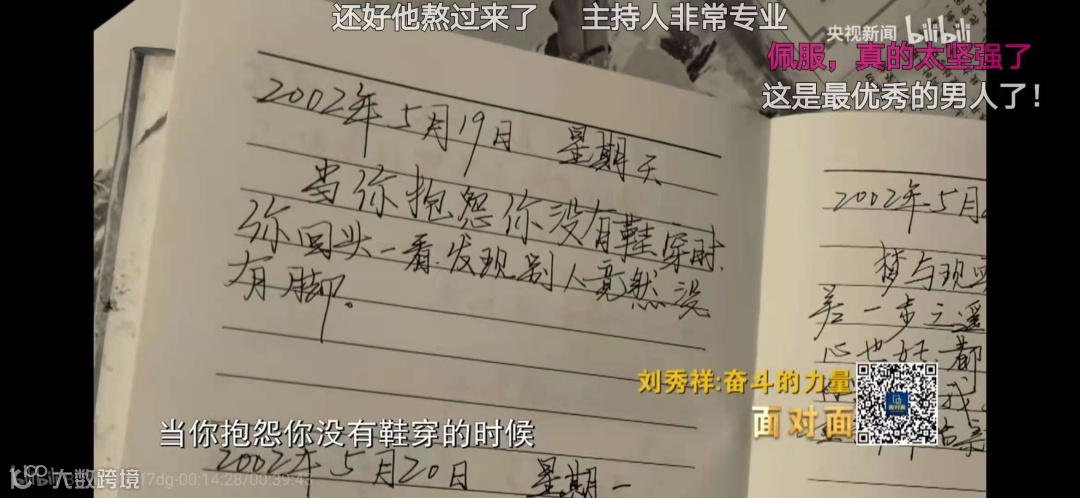 还好他熬过来了 主持人非常专业
央视新闻 bilibili
佩服，真的太坚强了
这是最优秀的男人了！
2002年5月19日 星期天
当你抱怨你没有鞋穿时,
你回头一看,发现别人竟然没
有脚。
2002年5月20日 星期一
2002年5月
梦与现实
差一步之遥
心也好 都
刘秀祥:奋斗的力量
面对面
当你抱怨你没有鞋穿的时候
大数跨境
f7dg-00:14:28/00:39:43